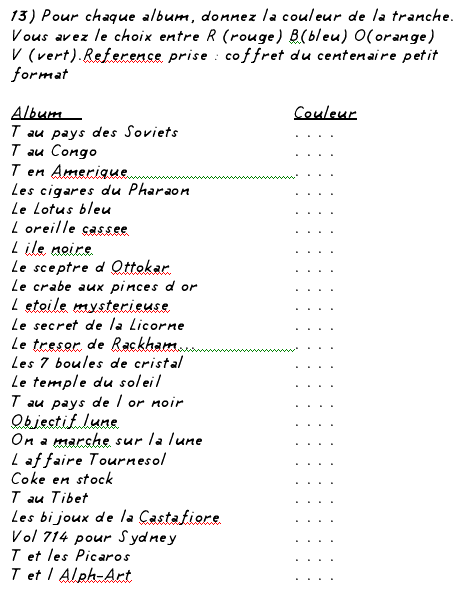 13) Pour chaque album, donnez la couleur de la tranche.
Vous avez le choix entre R (rouge) B(bleu) O(orange)
V (vert).Reference prise : coffret du centenaire petit
format
Album Couleur
T au pays des Soviets . . . .
T au Congo . . . .
T en Amerique . . . .
Les cigares du Pharaon . . . .
Le Lotus bleu . . . .
L oreille cassee . . . .
L ile noire . . . .
Le sceptre d Ottokar . . . .
Le crabe aux pinces d or . . . .
L etoile mysterieuse . . . .
Le secret de la Licorne . . . .
Le tresor de Rackham... . . . .
Les 7 boules de cristal . . . .
Le temple du soleil . . . .
T au pays de l or noir . . . .
Objectif lune . . . .
On a marche sur la lune . . . .
L affaire Tournesol . . . .
Coke en stock . . . .
T au Tibet . . . .
Les bijoux de la Castafiore . . . .
Vol 714 pour Sydney . . . .
T et les Picaros . . . .
T et l Alph-Art . . . .